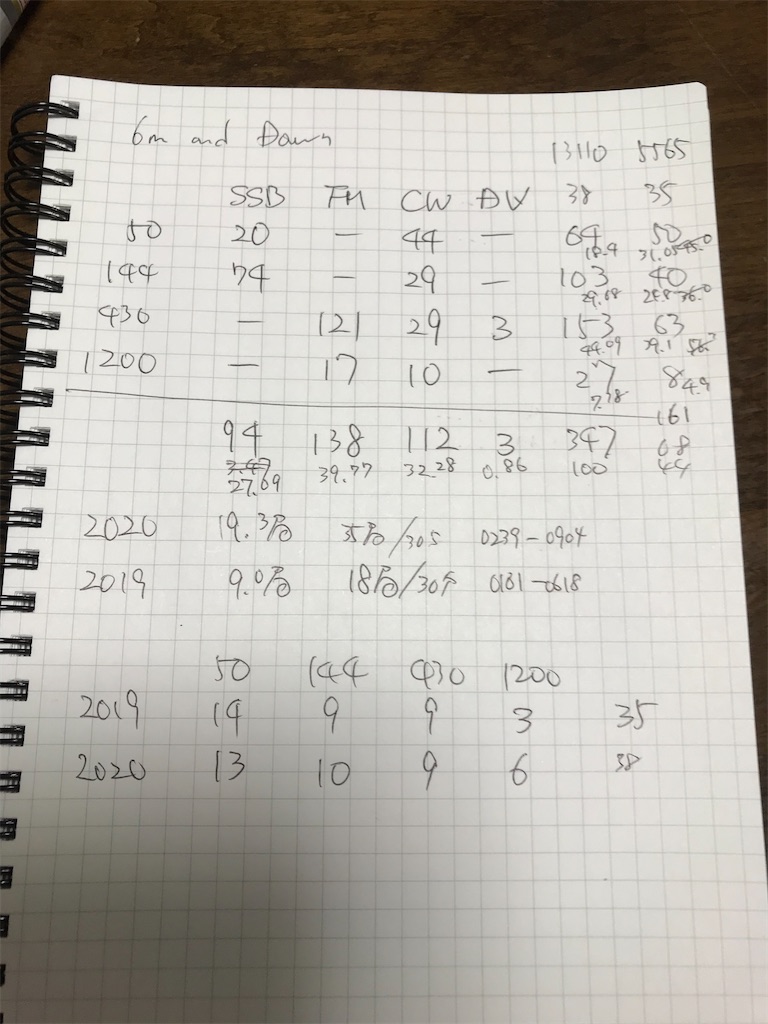 6m and Down 13110 5565
SSB FM CW DV 38 35
50 20 — 44 — 64 50
18.4 31.05
144 74 — 29 — 103 40
29.68 24.8
430 — 121 29 3 153 63
44.09 39.1
1200 — 17 10 — 27 8 4.9
7.78
161
94 138 112 3 347 68
39.77 32.28 0.86 100 44
27.09
2020 19.3局 35局/30分 0239-0904
2019 9.0局 18局/30分 0181-0618
50 144 430 1200
2019 14 9 9 3 35
2020 13 10 9 6 38